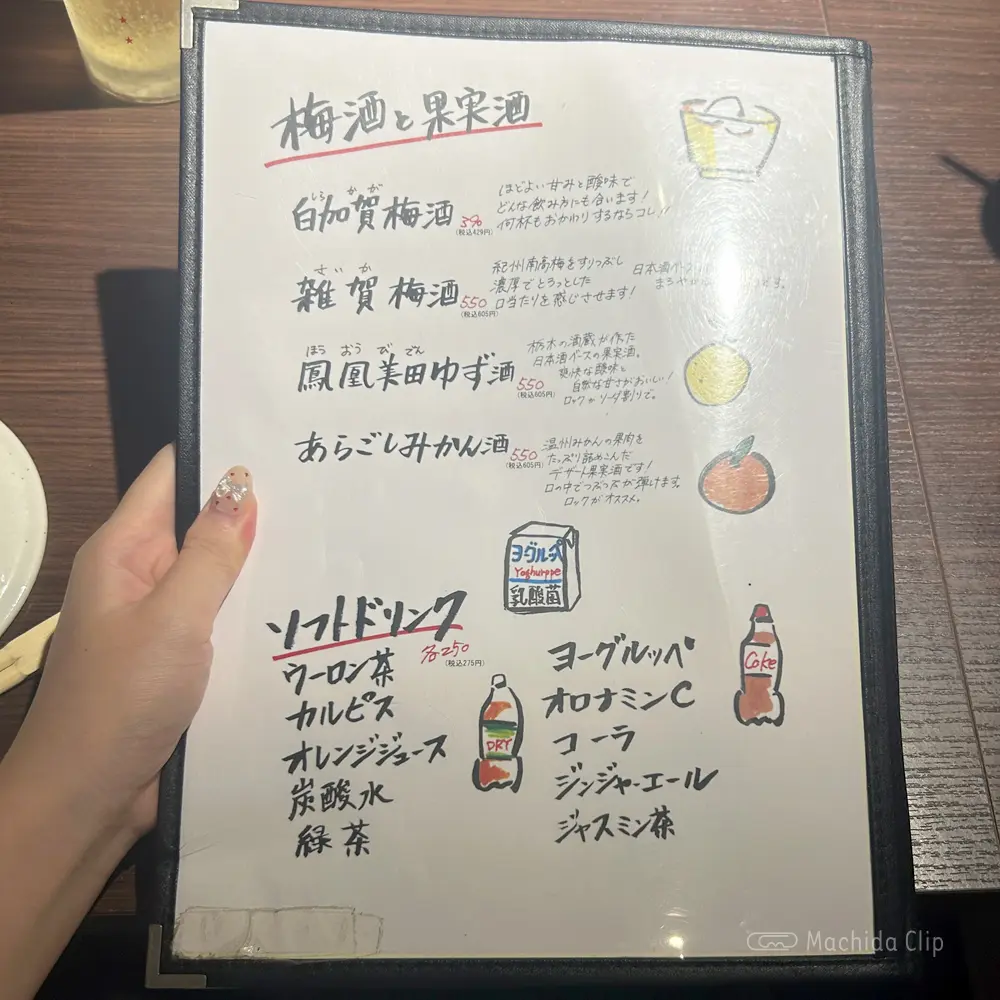 梅酒と果実酒
しらかが
白加賀梅酒 390
(税込429円)
ほどよい甘みと酸味で
どんな飲み方にも合います!
何杯もおかわりするならコレ!!
さいか
雑賀梅酒 550
(税込605円)
紀州南高梅をすりつぶし
濃厚でとろっとした
口当たりを感じさせます!
日本酒ベース
ほうおうびでん
鳳凰美田ゆず酒 550
(税込605円)
栃木の酒蔵が作った
日本酒ベースの果実酒。
爽快な酸味と
自然な甘さがおいしい!
ロックかソーダ割りで。
あらごしみかん酒 550
(税込605円)
温州みかんの果肉を
たっぷり詰めこんだ
デザート果実酒です!
口の中でつぶつぶが弾けます。
ロックがオススメ。
ヨーグルッペ
Yoghurppe
乳酸菌
ソフトドリンク
各250
(税込275円)
ウーロン茶
カルピス
オレンジジュース
炭酸水
緑茶
DRY
ヨーグルッペ
オロナミンC
コーラ
ジンジャーエール
ジャスミン茶
Coke
Machida Clip